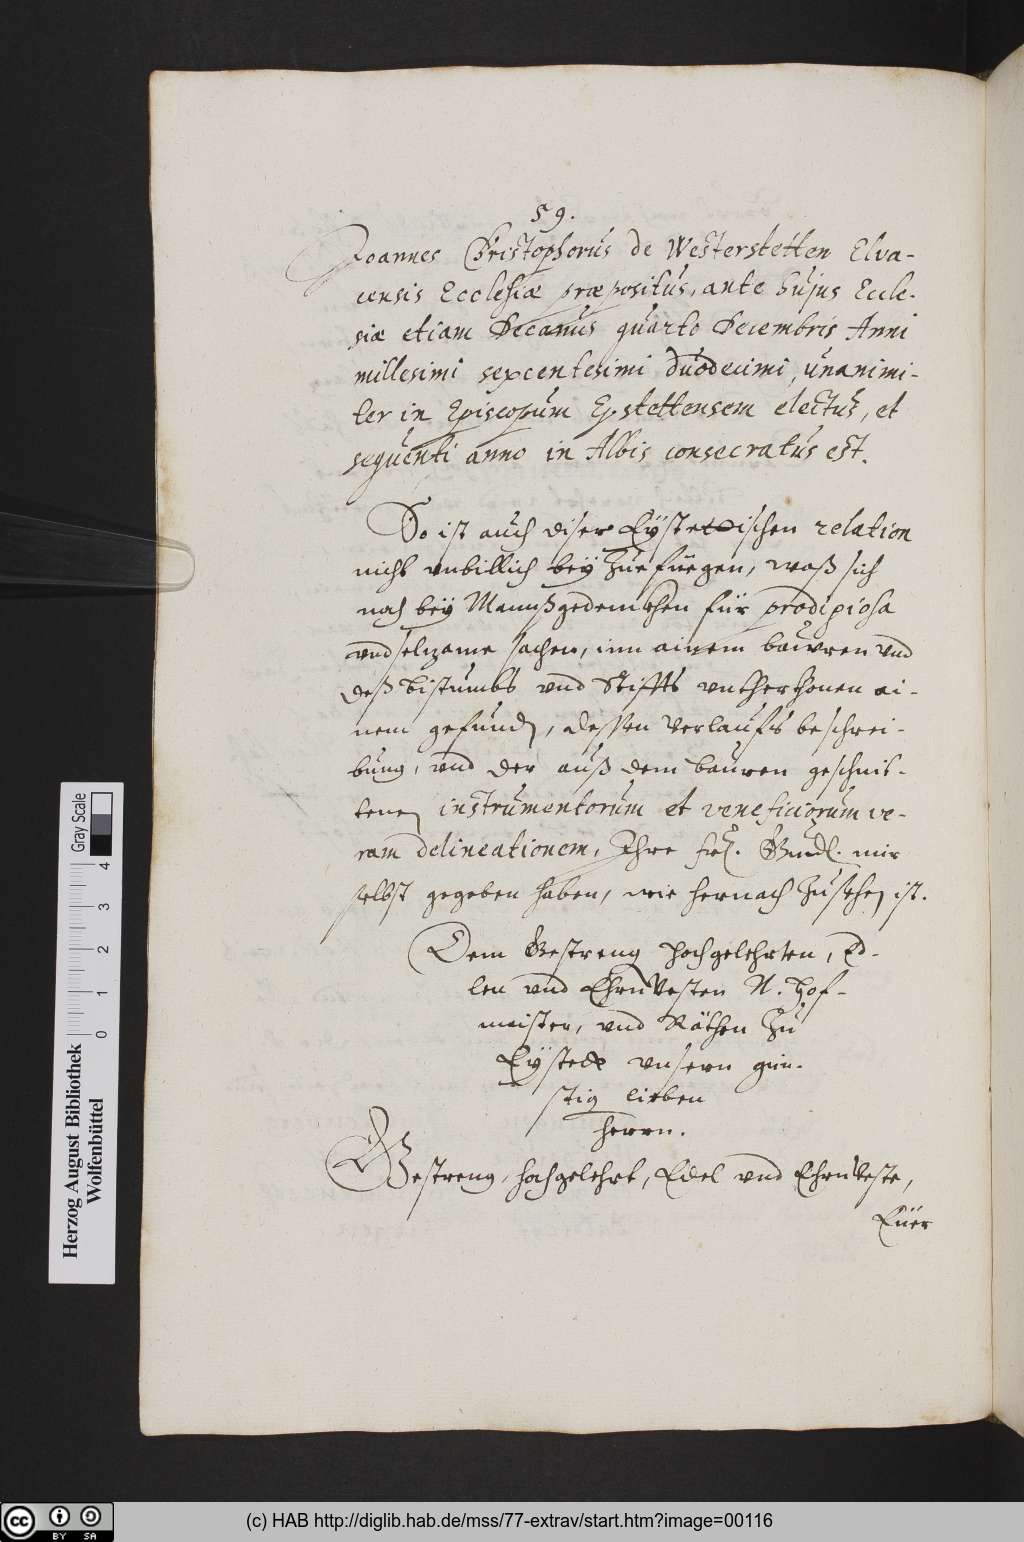 59.
Joannes Christophorus de Westerstetten Elva-
censis Ecclesiæ præpositus, ante hujus Eccle-
siæ etiam Decanus quarto Decembris Anni
millesimi sexcentesimi duodecimi, unanimi-
ter in Episcopum Eystettensem electus, et
sequenti anno in Albis consecratus est.
So ist auch diser Eystettischen relation
nicht vnbillich beÿ Zue fuegen, waß sich
noch beÿ Mannßgedenckhen für prodigiosa
vnd selzame sachen, inn ainem bauren vnd
deß bistumbs vnd Stiffts vntherthonen ai-
nem gefunden, dessen verlaufs beschrei-
bung, vnd der auß dem bauren geschnit-
tenen instrumentorum et veneficiorum ve-
ram delineationem, Ihre frl. Gnnd. mir
selbst gegeben haben, wie hernach Zu sehen ist.
Dem Gestreng hochgelehrten, Ed-
len vnd Ehrnvesten N. Hof-
maister, vnd Räthen Zu
Eÿstett vnsern gün-
stig lieben
herrn.
Gestreng, hochgelehrt, Edel vnd Ehrnveste,
Euer
Gray Scale
0 1 2 3 4
Herzog August Bibliothek
Wolfenbüttel
cc BY SA
(c) HAB http://diglib.hab.de/mss/77-extrav/start.htm?image=00116